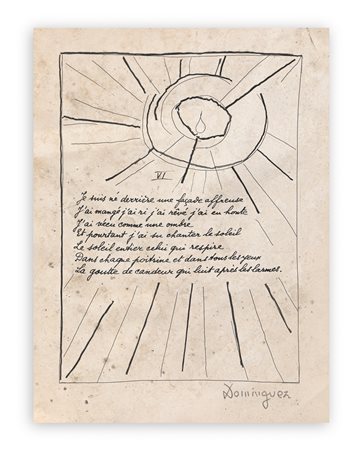 VI
Je suis né derrière une façade affreuse
J'ai mangé j'ai ri j'ai rêvé j'ai eu honte
J'ai vécu comme une ombre
Et pourtant j'ai su chanter le soleil
Le soleil entier celui qui respire
Dans chaque poitrine et dans tous les yeux
La goutte de candeur qui luit après les larmes.
Dominguez